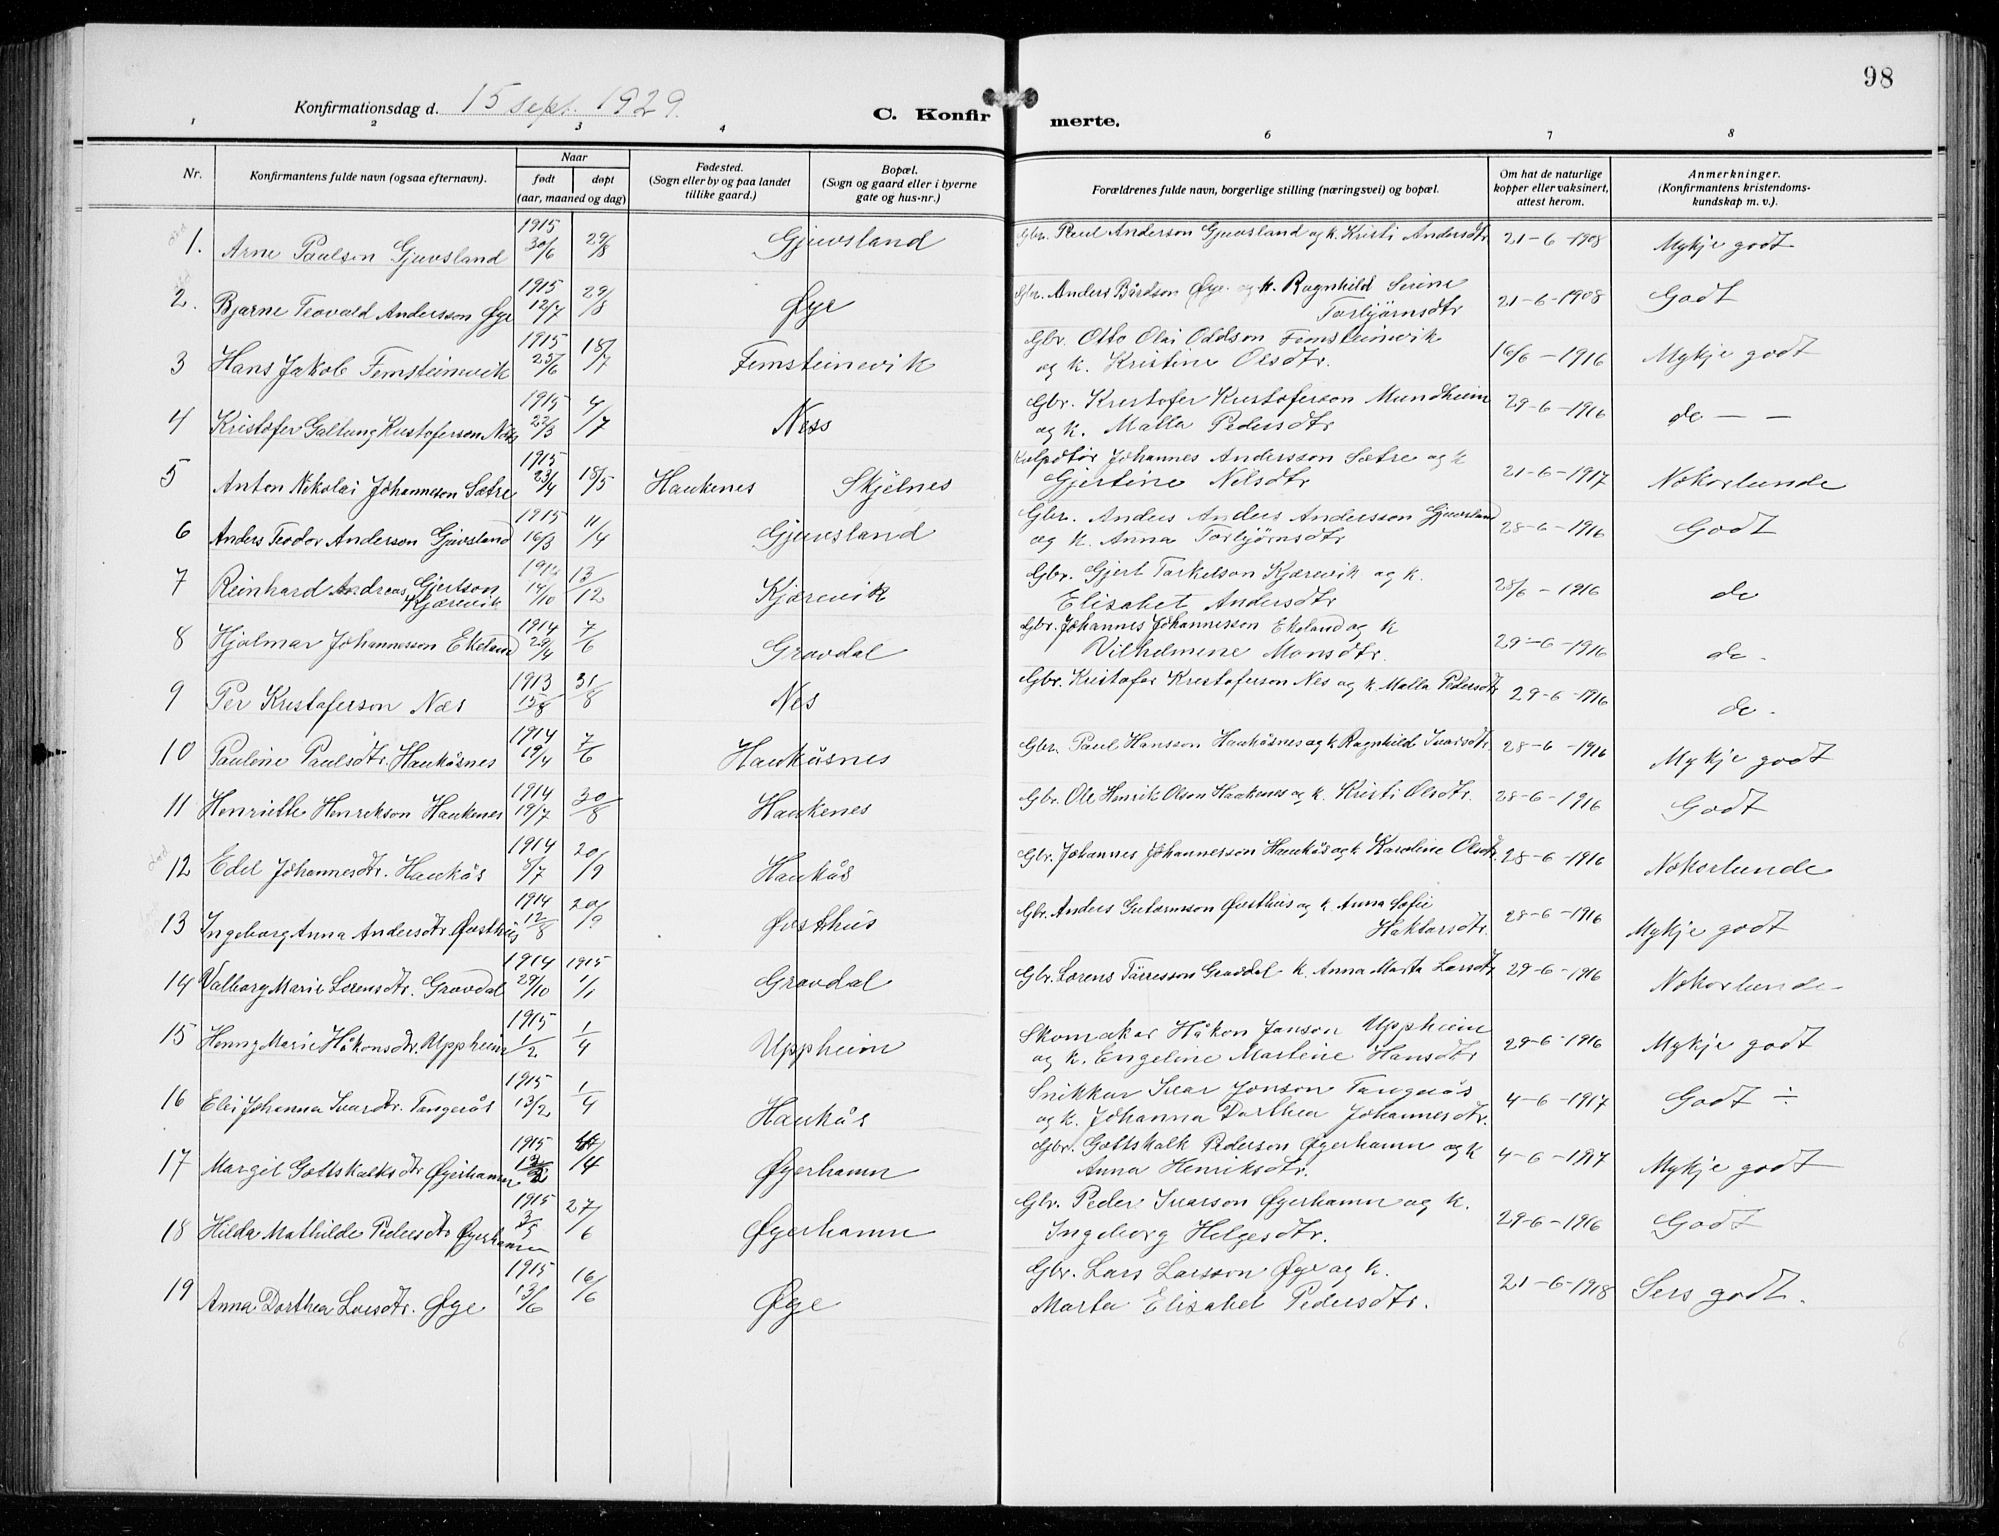 98
Konfirmationsdag d. 15 sept. 1929.
C. Konfirmerte.
1 2 3 4 6 7 8
Nr.
Konfirmantens fulde navn (ogsaa efternavn).
Naar
født
døpt
(aar, maaned og dag)
Fødested.
(Sogn eller by og paa landet
tillike gaard.)
Bopæl.
(Sogn og gaard eller i byerne
gate og hus-nr.)
Forældrenes fulde navn, borgerlige stilling (næringsvei) og bopæl.
Om hat de naturlige
kopper eller vaksinert,
attest herom.
Anmerkninger.
(Konfirmantens kristendoms-
kundskap m. v.).
1. Arne Paulson Gjuvsland 1915 30/6 29/8 Gjuvsland Gbr. Paul Anderson Gjuvsland og k. Kristi Andersdtr 21-6-1908 Mykje godt
2. Bjarne Teovald Andersson Øye 1915 12/7 29/8 Øye Gbr. Anders Bårdson Øye og k. Ragnhild Serine
Torbjørnsdtr 21-6-1908 Godt
3 Hans Jakob Femsteinevik 1915 25/6 18/7 Femsteinevik Gbr. Otto Olai Oddson Femsteinevik
og k. Kristine Olsdtr. 16/6-1916 Mykje godt
4 Kristofer Galtung Kristoferson Nes 1915 22/3 4/7 Ness Gbr. Kristofer Kristoferson Mundheim
og k. Malla Pedersdtr 29-6-1916 do — —
5 Anton Nikolai Johanneson Sætre 1915 23/4 18/5 Haukenes Skjelnes Johannes Andersson Sætre og k
Gjertine Nilsdtr 21-6-1917 Nokorlunde
6 Anders Teodor Anderson Gjuvsland 1915 16/3 11/4 Gjuvsland Gbr. Anders Anders Andersson Gjuvsland
og k. Anna Torbjørnsdtr 28-6-1916 Godt
7 Reinhard Andreas Gjertson
Kjærevik 1914 14/10 13/12 Kjærevik Gbr. Gjert Torkelson Kjærevik og k.
Elisabet Andersdtr 28/6-1916 do
8 Hjalmar Johannesson Ekeland 1914 29/4 7/6 Gravdal Gbr. Johannes Johannesson Ekeland og k
Vilhelmine Monsdtr. 29-6-1916 do.
9 Per Kristoferson Næs 1913 15/8 31/8 Nes Gbr. Kristofer Kristoferson Nes og k. Malla Pedersdtr 29-6-1916 do.
10 Pauline Paulsdtr. Haukåsnes 1914 19/4 7/6 Haukåsnes Gbr. Paul Hansson Haukåsnes og k. Ragnhild Ivarsdtr. 28-6-1916 Mykje godt
11 Henriette Henrikson Haukenes 1914 19/7 30/8 Haukenes Gbr. Ole Henrik Olson Haukenes og k. Kristi Olsdtr. 28-6-1916 Godt
12 Edel Johannesdtr. Haukås 1914 8/7 20/9 Haukås Gbr. Johannes Johannesson Haukås og k Karoline Olsdtr. 28-6-1916 Nokorlunde
13 Ingeborg Anna Andersdtr. Øvsthus 1914 12/8 20/9 Øvsthus Gbr. Anders Guttormson Øvsthus og k. Anna Sofie
Haktorsdtr. 28-6-1916 Mykje godt
14 Valborg Marie Lorensdtr. Gravdal 1914 29/10 1915 1/1 Gravdal Gbr. Lorens Tørresson Gravdal k. Anna Marta Larsdtr 29-6-1916 Nokorlunde
15 Henny Marie Håkonsdtr. Uppheim 1915 1/2 1/4 Uppheim Skomakar Håkon Janson Uppheim
og k. Engeline Martine Hansdtr 29-6-1916 Mykje godt
16 Eli Johanna Ivarsdtr. Tangerås 1915 13/2 1/4 Haukås Snikkar Ivar Jonson Tangerås
og k. Johanna Dorthea Johannesdtr. 4-6-1917 Godt ÷
17 Margit Gottskalksdtr Øyerhamn 1915 /4 Øyerhamn Gbr. Gottskalk Pederson Øyerhamn og k
Anna Henriksdtr. 4-6-1917 Mykje godt
18 Hilda Mathilde Pedersdtr Øyerhamn 1915 3/5 27/6 Øyerhamn Gbr. Peder Ivarson Øyerhamn og k.
Ingeborg Helgesdtr. 29-6-1916 Godt
19 Anna Dorthea Larsdtr. Øye 1915 13/6 16/6 Øye Gbr. Lars Larsson Øye og k.
Marta Elisabet Pedersdtr. 21-6-1918 Sers godt.